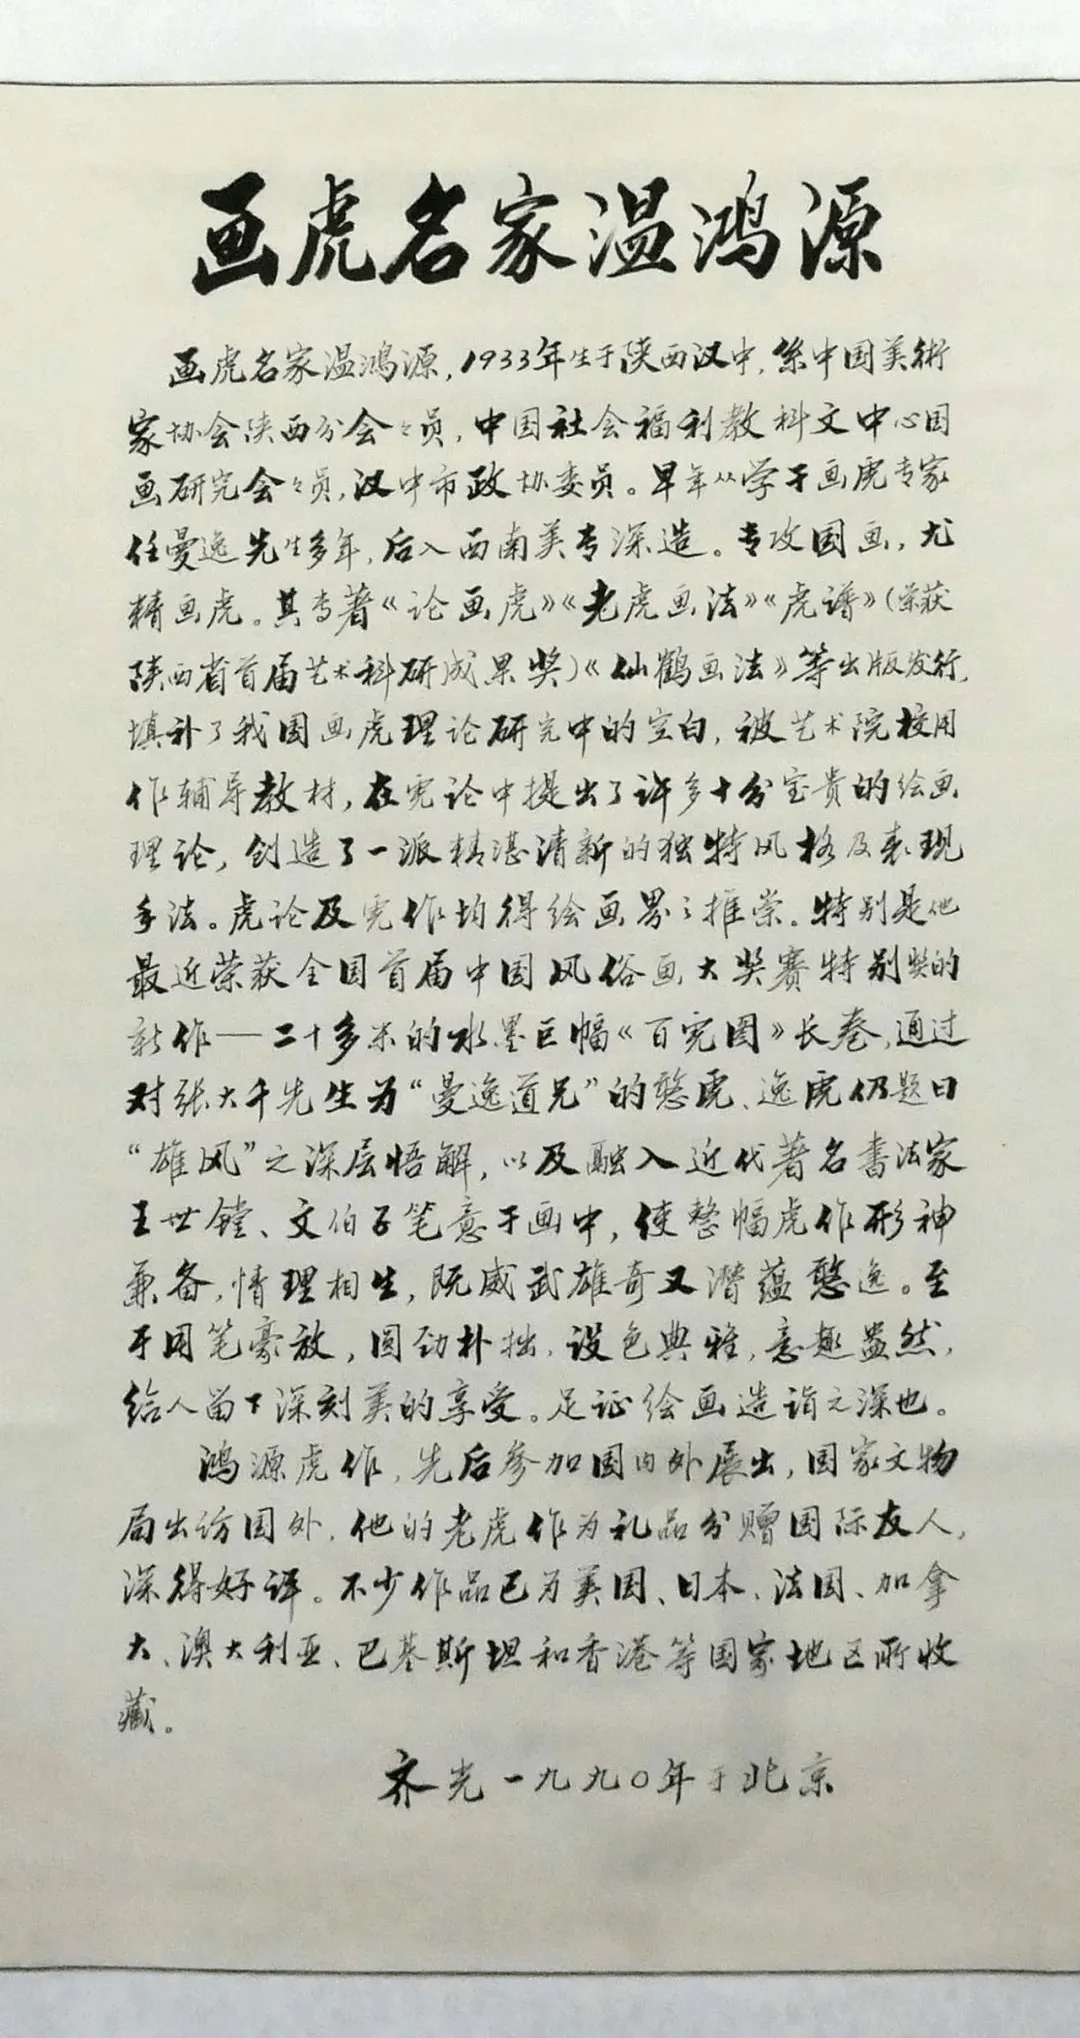 画虎名家温鸿源
画虎名家温鸿源，1933年生于陕西汉中，系中国美術
家协会陕西分会々员，中国社会福利教科文中心国
画研究会々员，汉中市政协委员。早年从学于画虎专家
任曼逸先生多年，后入西南美专深造。专攻国画，尤
精画虎。其专著《论画虎》《老虎画法》《虎谱》（荣获
陕西省首届艺术科研成果奖）《仙鹤画法》等出版发行，
填补了我国画虎理论研究中的空白，被艺术院校用
作辅导教材，在虎论中提出了许多十分宝贵的绘画
理论，创造了一派精湛清新的独特风格及表现
手法。虎论及虎作均得绘画界之推崇。特别是他
最近荣获全国首届中国风俗画大奖赛特别奖的
新作—二十多米的水墨巨幅《百虎图》长卷，通过
对张大千先生为“曼逸道兄”的憨虎、逸虎仍题曰
“雄风”之深层悟解，以及融入近代著名书法家
王世镗、文伯子笔意于画中，使整幅虎作形神
兼备，情理相生，既威武雄奇又潜蕴憨逸。至
于用笔豪放，圆劲朴拙，设色典雅，意趣盎然，
给人留下深刻美的享受。足证绘画造诣之深也。
鸿源虎作，先后参加国内外展出，国家文物
局出访国外，他的老虎作为礼品分赠国际友人，
深得好评。不少作品已为美国、日本、法国、加拿
大、澳大利亚、巴基斯坦和香港等国家地区所收
藏。
齐光一九九〇年于北京